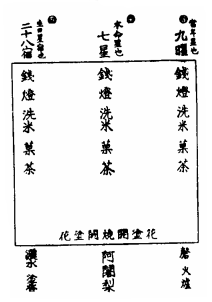 當年星也
九曜
錢 燈 洗米 菓 茶
本命星也
七星
錢 燈 洗米 菓 茶
二十八宿
錢 燈 洗米 菓 茶
花塗閼燒閼塗花
磬 火爐
阿闍梨
灑水 塗香